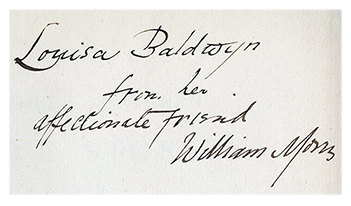 Louisa Baldwyn
from her
affectionate friend
William Morris